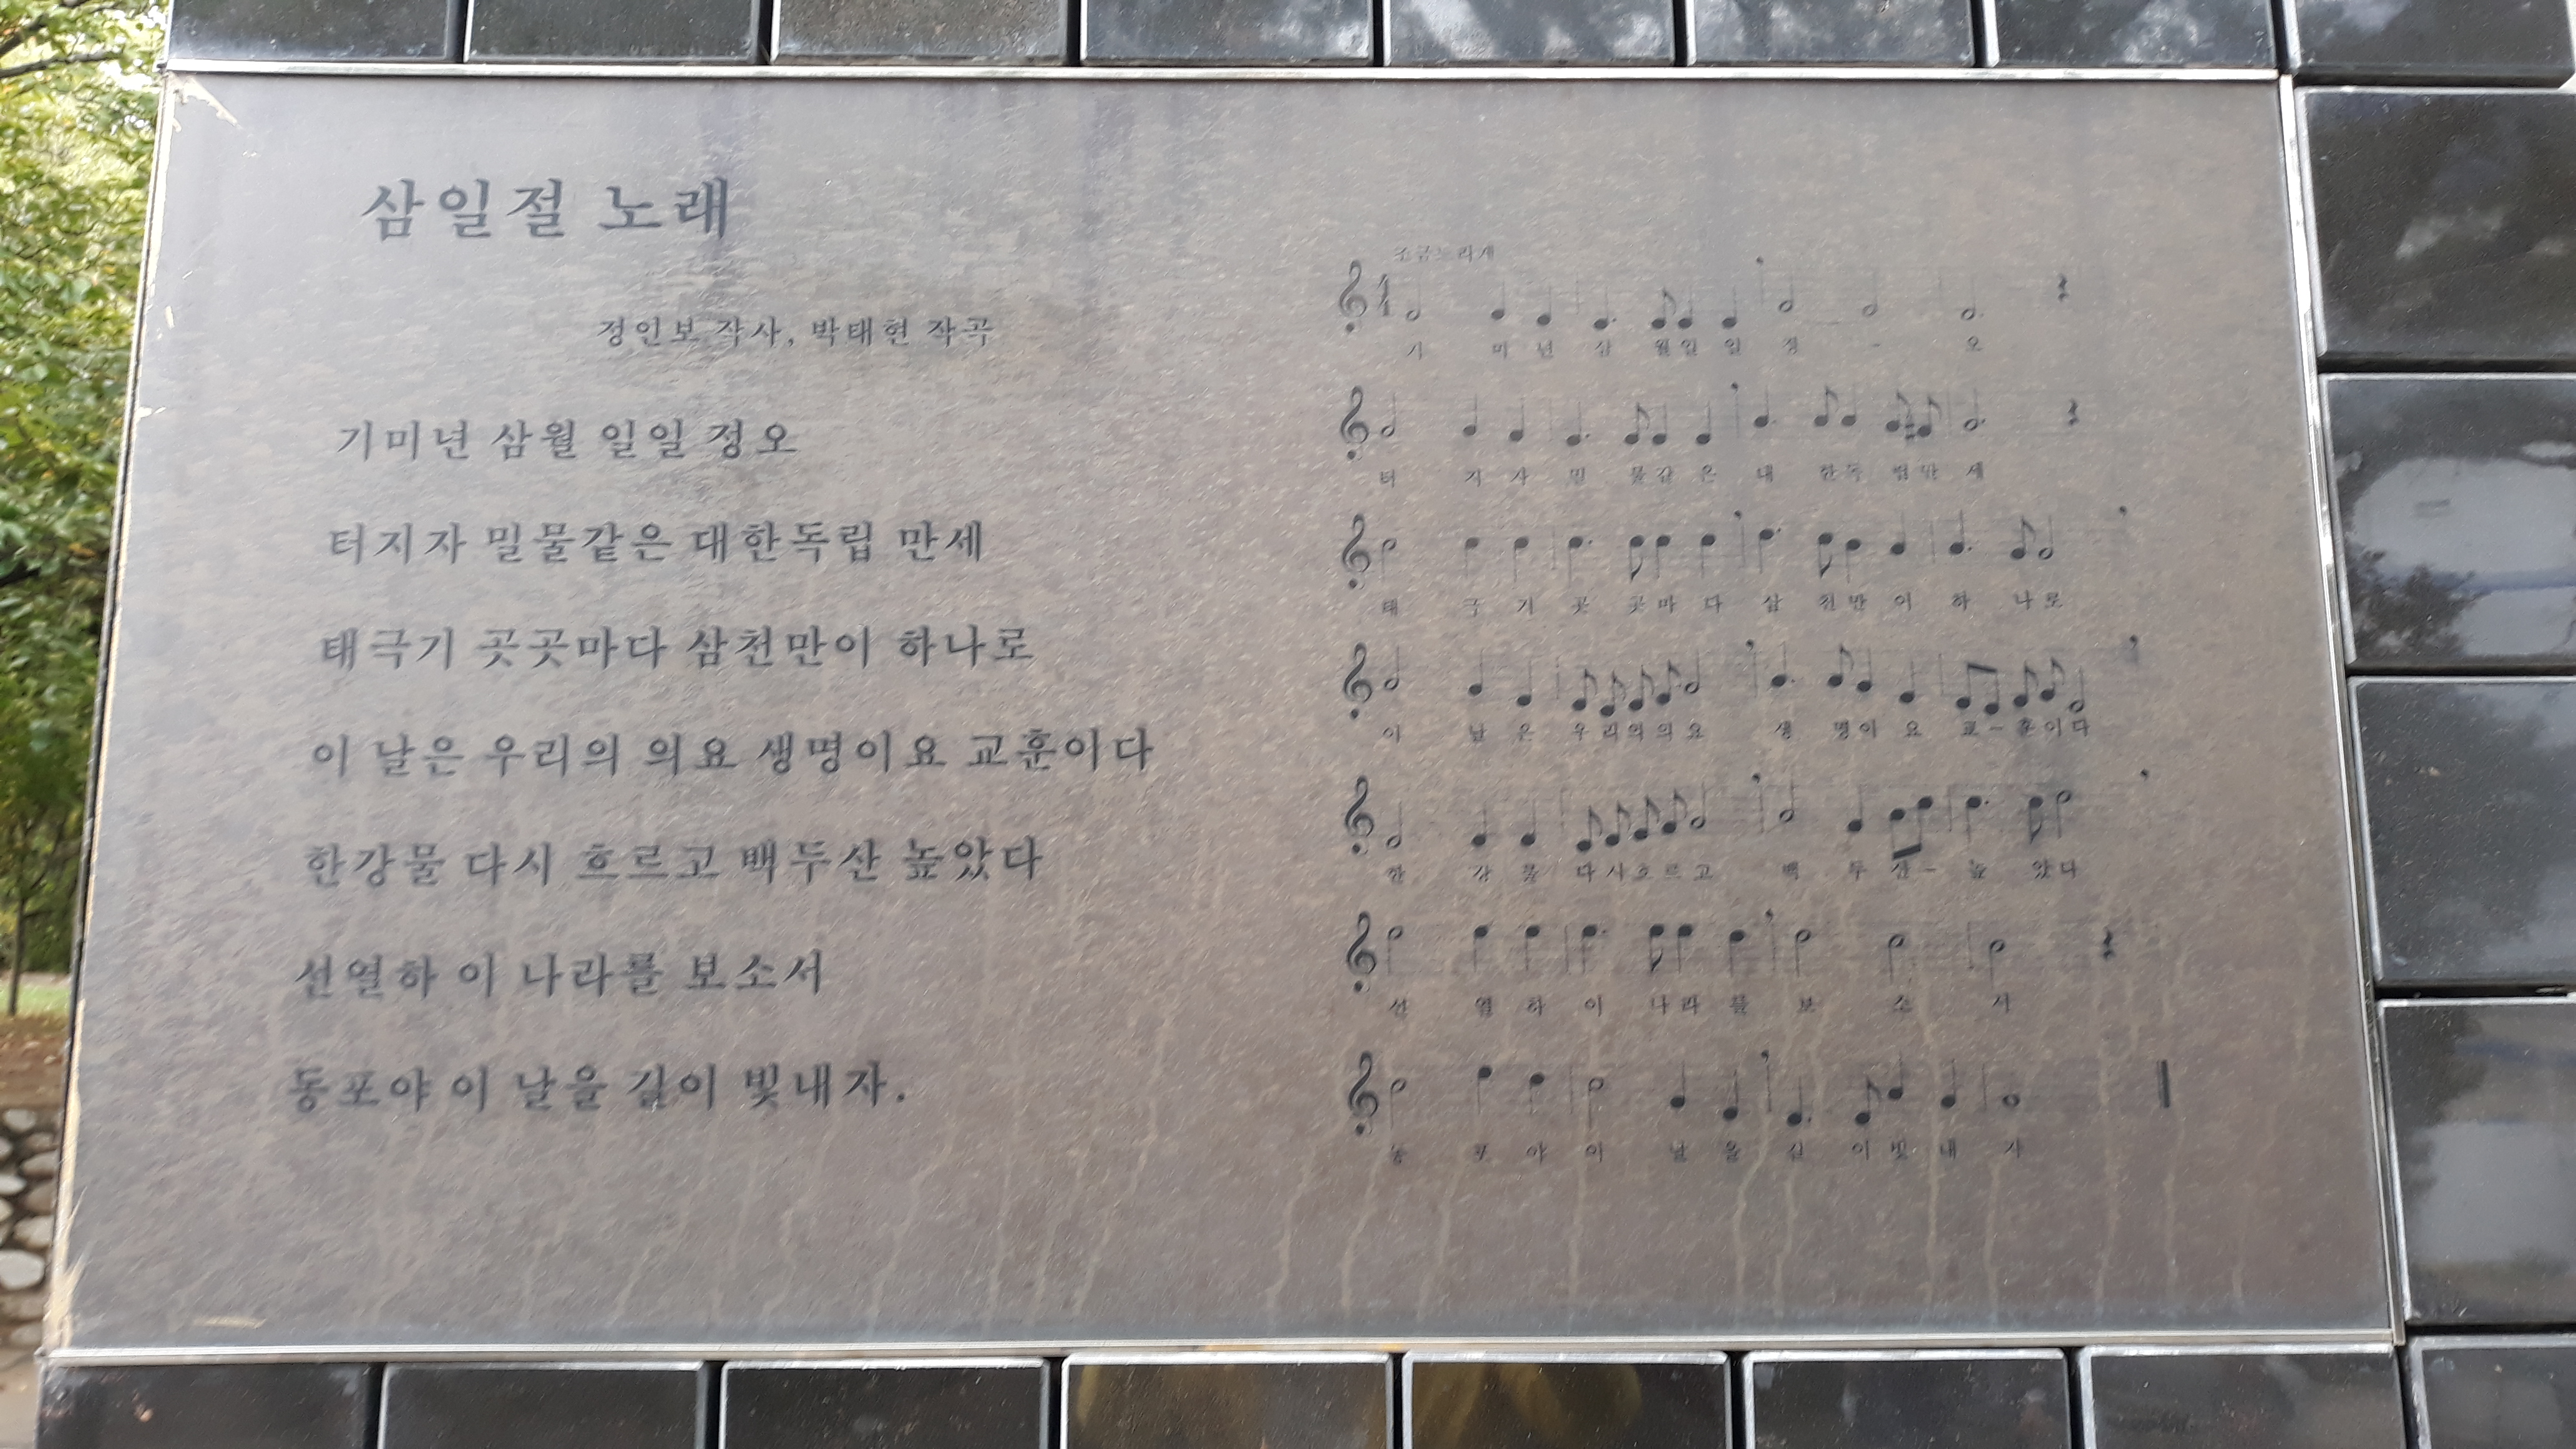 삼일절 노래
정인보 작사, 박태현 작곡
기미년 삼월 일일 정오
터지자 밀물같은 대한독립 만세
태극기 곳곳마다 삼천만이 하나로
이 날은 우리의 의요 생명이요 교훈이다
한강물 다시 흐르고 백두산 높았다
선열하 이 나라를 보소서
동포야 이 날을 길이 빛내자.
조금느리게
기 미 년 삼 월일 일 정 - 오
터 지 자 밀 물같 은 대 한독 립만 세
태 극 기 곳 곳마 다 삼 천만 이 하 나로
이 날 은 우리의의요 생 명이 요 교-훈이다
한 강 물 다시흐르고 백 두 산- 높 았다
선 열 하 이 나라 를 보 소 서
동 포 야 이 날 을 길 이 빛 내 자